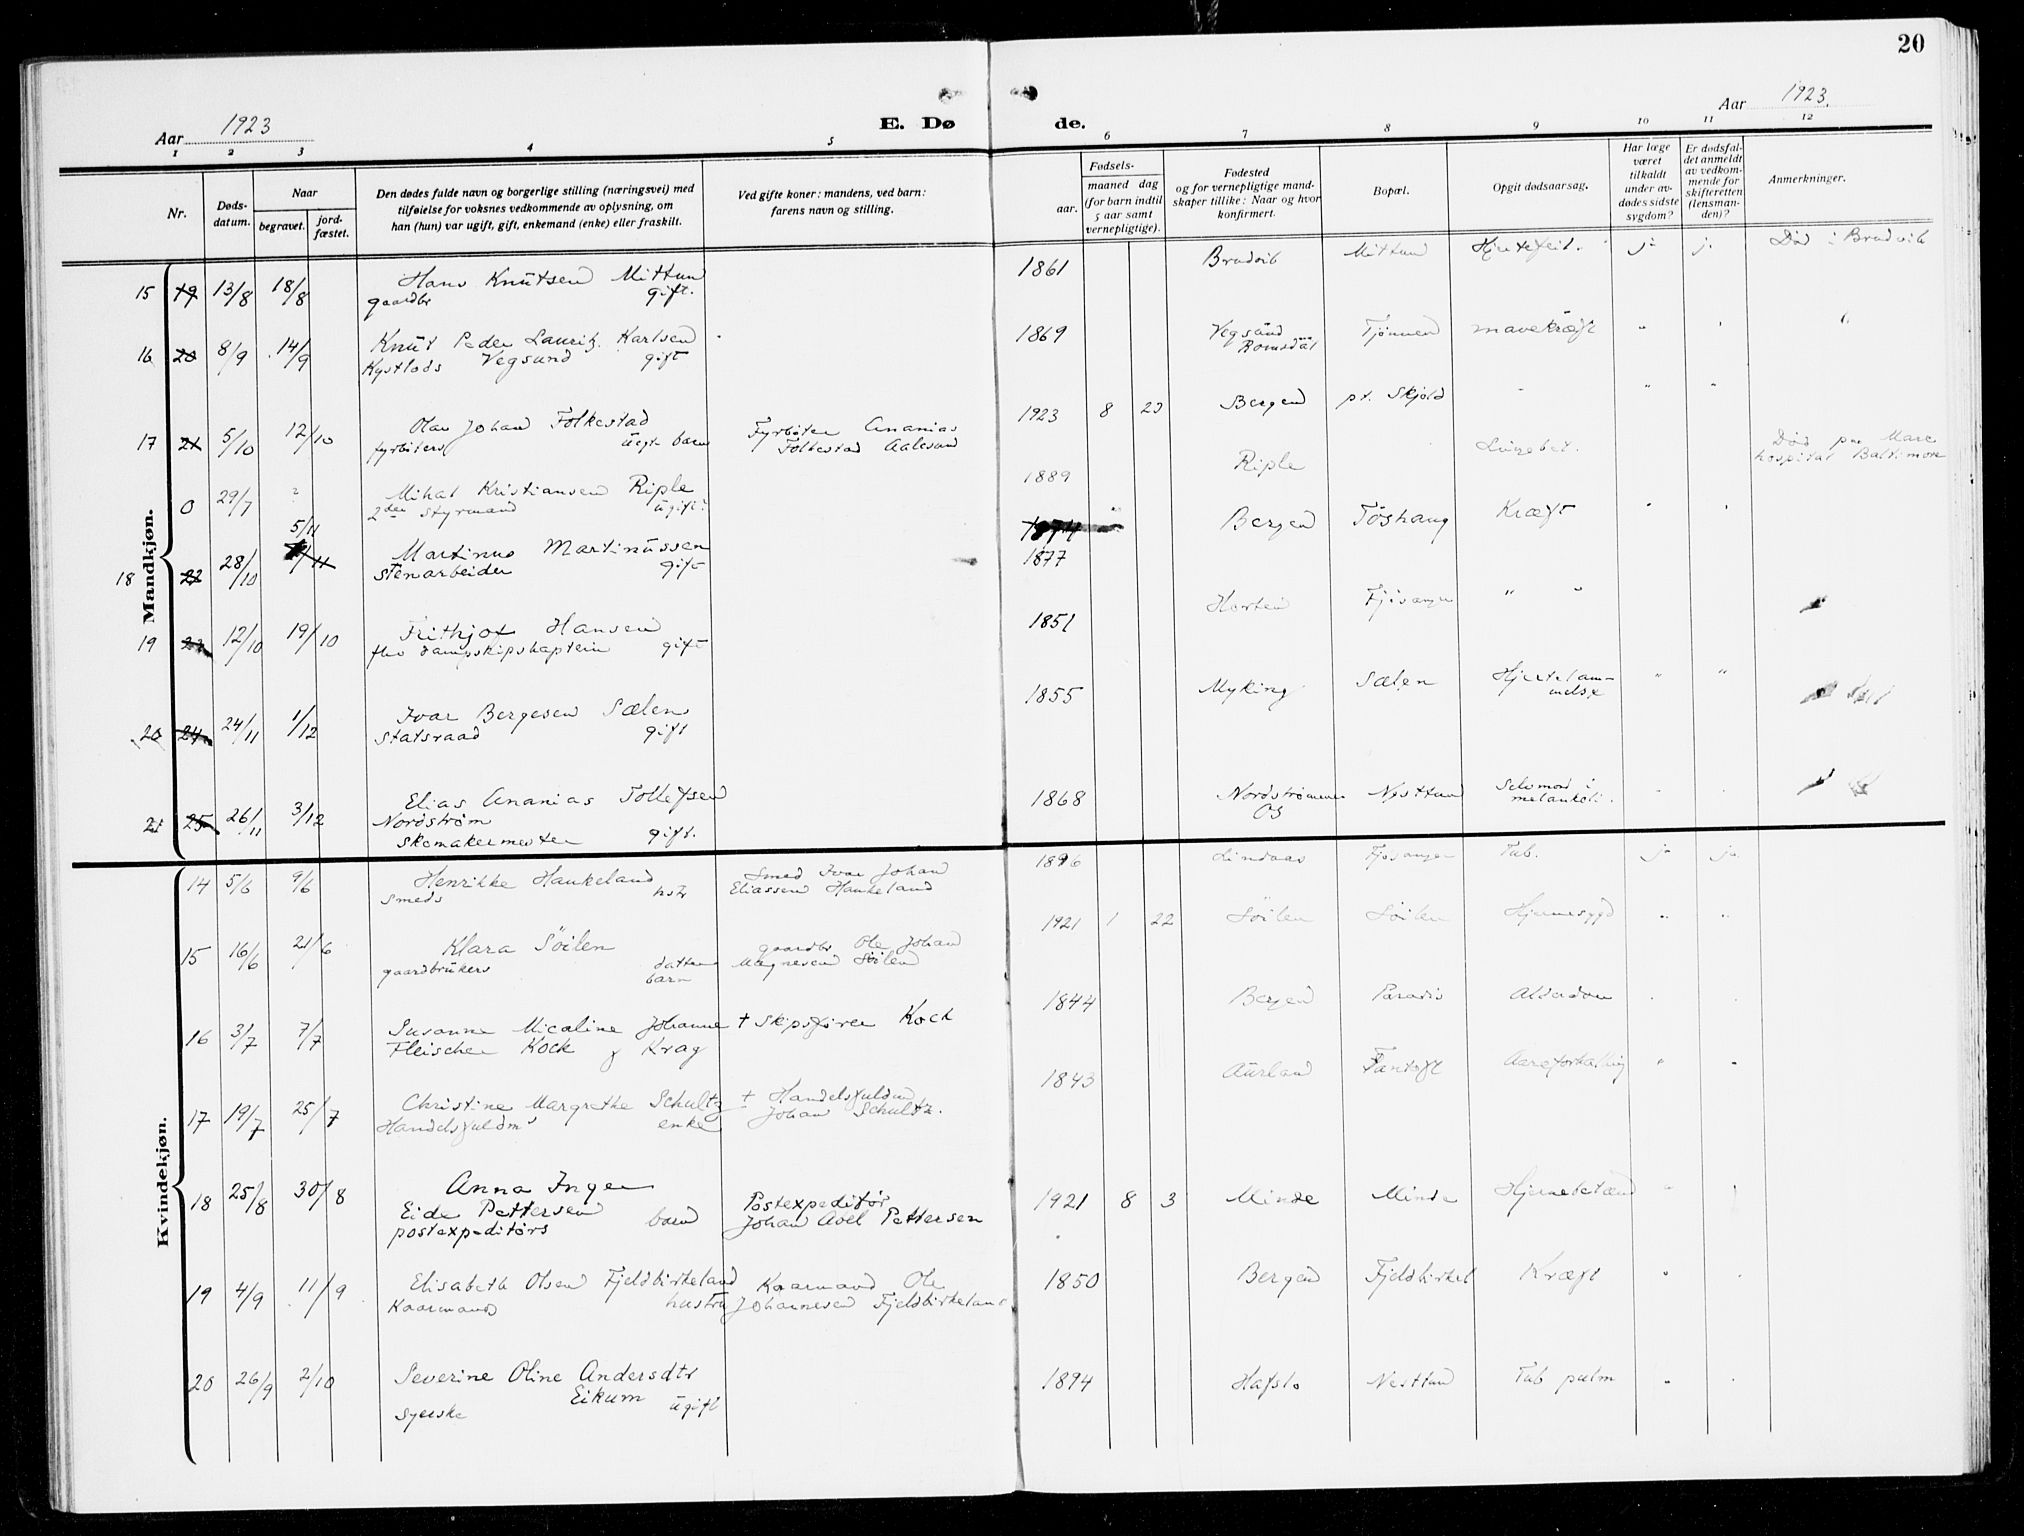 20
Aar 1923
E. Dø
de.
Aar 1923.
1 2 3 4 5 6 7 8 9 10 11 12
Nr.
Døds-
datum.
Naar
begravet.
jord-
fæstet.
Den dødes fulde navn og borgerlige stilling (næringsvei) med
tilføielse for voksnes vedkommende av oplysning, om
han (hun) var ugift, gift, enkemand (enke) eller fraskilt.
Ved gifte koner: mandens, ved barn:
farens navn og stilling.
Fødsels-
aar.
maaned dag
(for barn indtil
5 aar samt
vernepligtige).
Fødested
og for vernepligtige mand-
skaper tillike: Naar og hvor
konfirmert.
Bopæl.
Opgit dødsaarsag.
Har læge
været
tilkaldt
under av-
dødes sidste
sygdom?
Er dødsfal-
det anmeldt
av vedkom-
mende for
skifteretten
(lensman-
den)?
Anmerkninger.
Mandkjøn.
15 19 13/8 18/8 Hans Knutsen Mittun 1861 Bradvik Mittun Hjertefeil. ja j. Død i Bradvik
gaardbr gift.
16 20 8/9 14/9 Knut Peder Lauritz Karlsen 1869 Vegsund Tjønnen mavekræft " "
Kystlods Vegsund gift Romsdal
17 21 5/10 12/10 Olav Johan Folkestad Fyrbøter Ananias 1923 8 Bergen pt. Skjold - " "
fyrbøters uegte barn Folkestad Aalesund
0 29/7 ? Mihal Kristiansen Riple 1889 Riple Lungebet. Død paa Mare
2den styrmand ugift hospital Baltimore
18 22 28/10 5/11 Martinus Martinussen 1874 1877 Bergen Tøshaug Kræft " "
stenarbeider gift
19 23 12/10 19/10 Frithjof Hansen 1851 Horten Fjøsanger " "
fhv dampskipskaptein gift
20 24 24/11 1/12 Ivar Bergesen Sælen 1855 Myking Sælen Hjertelam-
statsraad gift melse " "
21 25 26/11 3/12 Elias Ananias Tollefsen 1868 Nordstrømmen Nesttun Selvmord i
Nordstrøm Os melankoli.
Skomakermester gift.
Kvindekjøn.
14 5/6 9/6 Henrikke Haukeland Smed Ivar Johan 1896 Lindaas Fjøsanger Tub. ja ja
smeds hstr Eliassen Haukeland
15 16/6 21/6 Klara Söilen gaardbr Ole Johan 1921 1 22 Söilen Söilen Hjernesygd " "
gaardbrukers datter Magnesen Söilen
barn
16 3/7 7/7 Susanne Micaline Johanne † Skipsfører Kock 1844 Bergen Paradis Alderdom
Fleischer Kock f Krag
17 19/7 25/7 Christine Margrethe Schultz † Handelsfuldm 1843 Aurland Fantoft Aareforkalkning " "
Handelsfuldm's enke Johan Schultz.
18 25/8 30/8 Anna Inger Postexpeditør 1921 8 3 Minde Minde Hjernebetænd "
Eide Pettersen barn Johan Axel Pettersen
postexpeditørs
19 4/9 11/9 Elisabeth Olsen Fjeldbirkeland Kaarmand Ole 1850 Bergen Fjeldbirkel Kræft "
Kaarmands hustru Johannesen Fjeldbirkeland
20 26/9 2/10 Severine Oline Andersdtr 1894 Hafslo Nesttun Tub pulm "
Eikum
syerske ugift